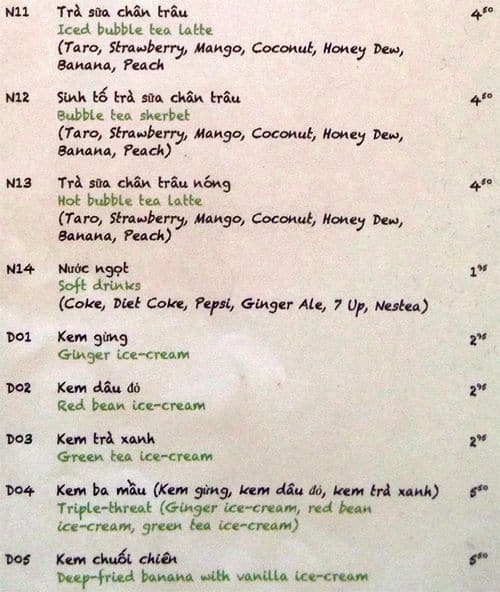 N11 Trà sữa chân trâu 4⁵⁰
Iced bubble tea latte
(Taro, Strawberry, Mango, Coconut, Honey Dew,
Banana, Peach
N12 Sinh tố trà sữa chân trâu 4⁵⁰
Bubble tea sherbet
(Taro, Strawberry, Mango, Coconut, Honey Dew,
Banana, Peach)
N13 Trà sữa chân trâu nóng 4⁵⁰
Hot bubble tea latte
(Taro, Strawberry, Mango, Coconut, Honey Dew,
Banana, Peach)
N14 Nước ngọt 1⁹⁵
Soft drinks
(Coke, Diet Coke, Pepsi, Ginger Ale, 7 Up, Nestea)
D01 Kem gừng 2⁹⁵
Ginger ice-cream
D02 Kem dâu đỏ 2⁹⁵
Red bean ice-cream
D03 Kem trà xanh 2⁹⁵
Green tea ice-cream
D04 Kem ba mầu (Kem gừng, kem dâu đỏ, kem trà xanh) 5⁵⁰
Triple-threat (Ginger ice-cream, red bean
ice-cream, green tea ice-cream)
D05 Kem chuối chiên 5⁵⁰
Deep-fried banana with vanilla ice-cream